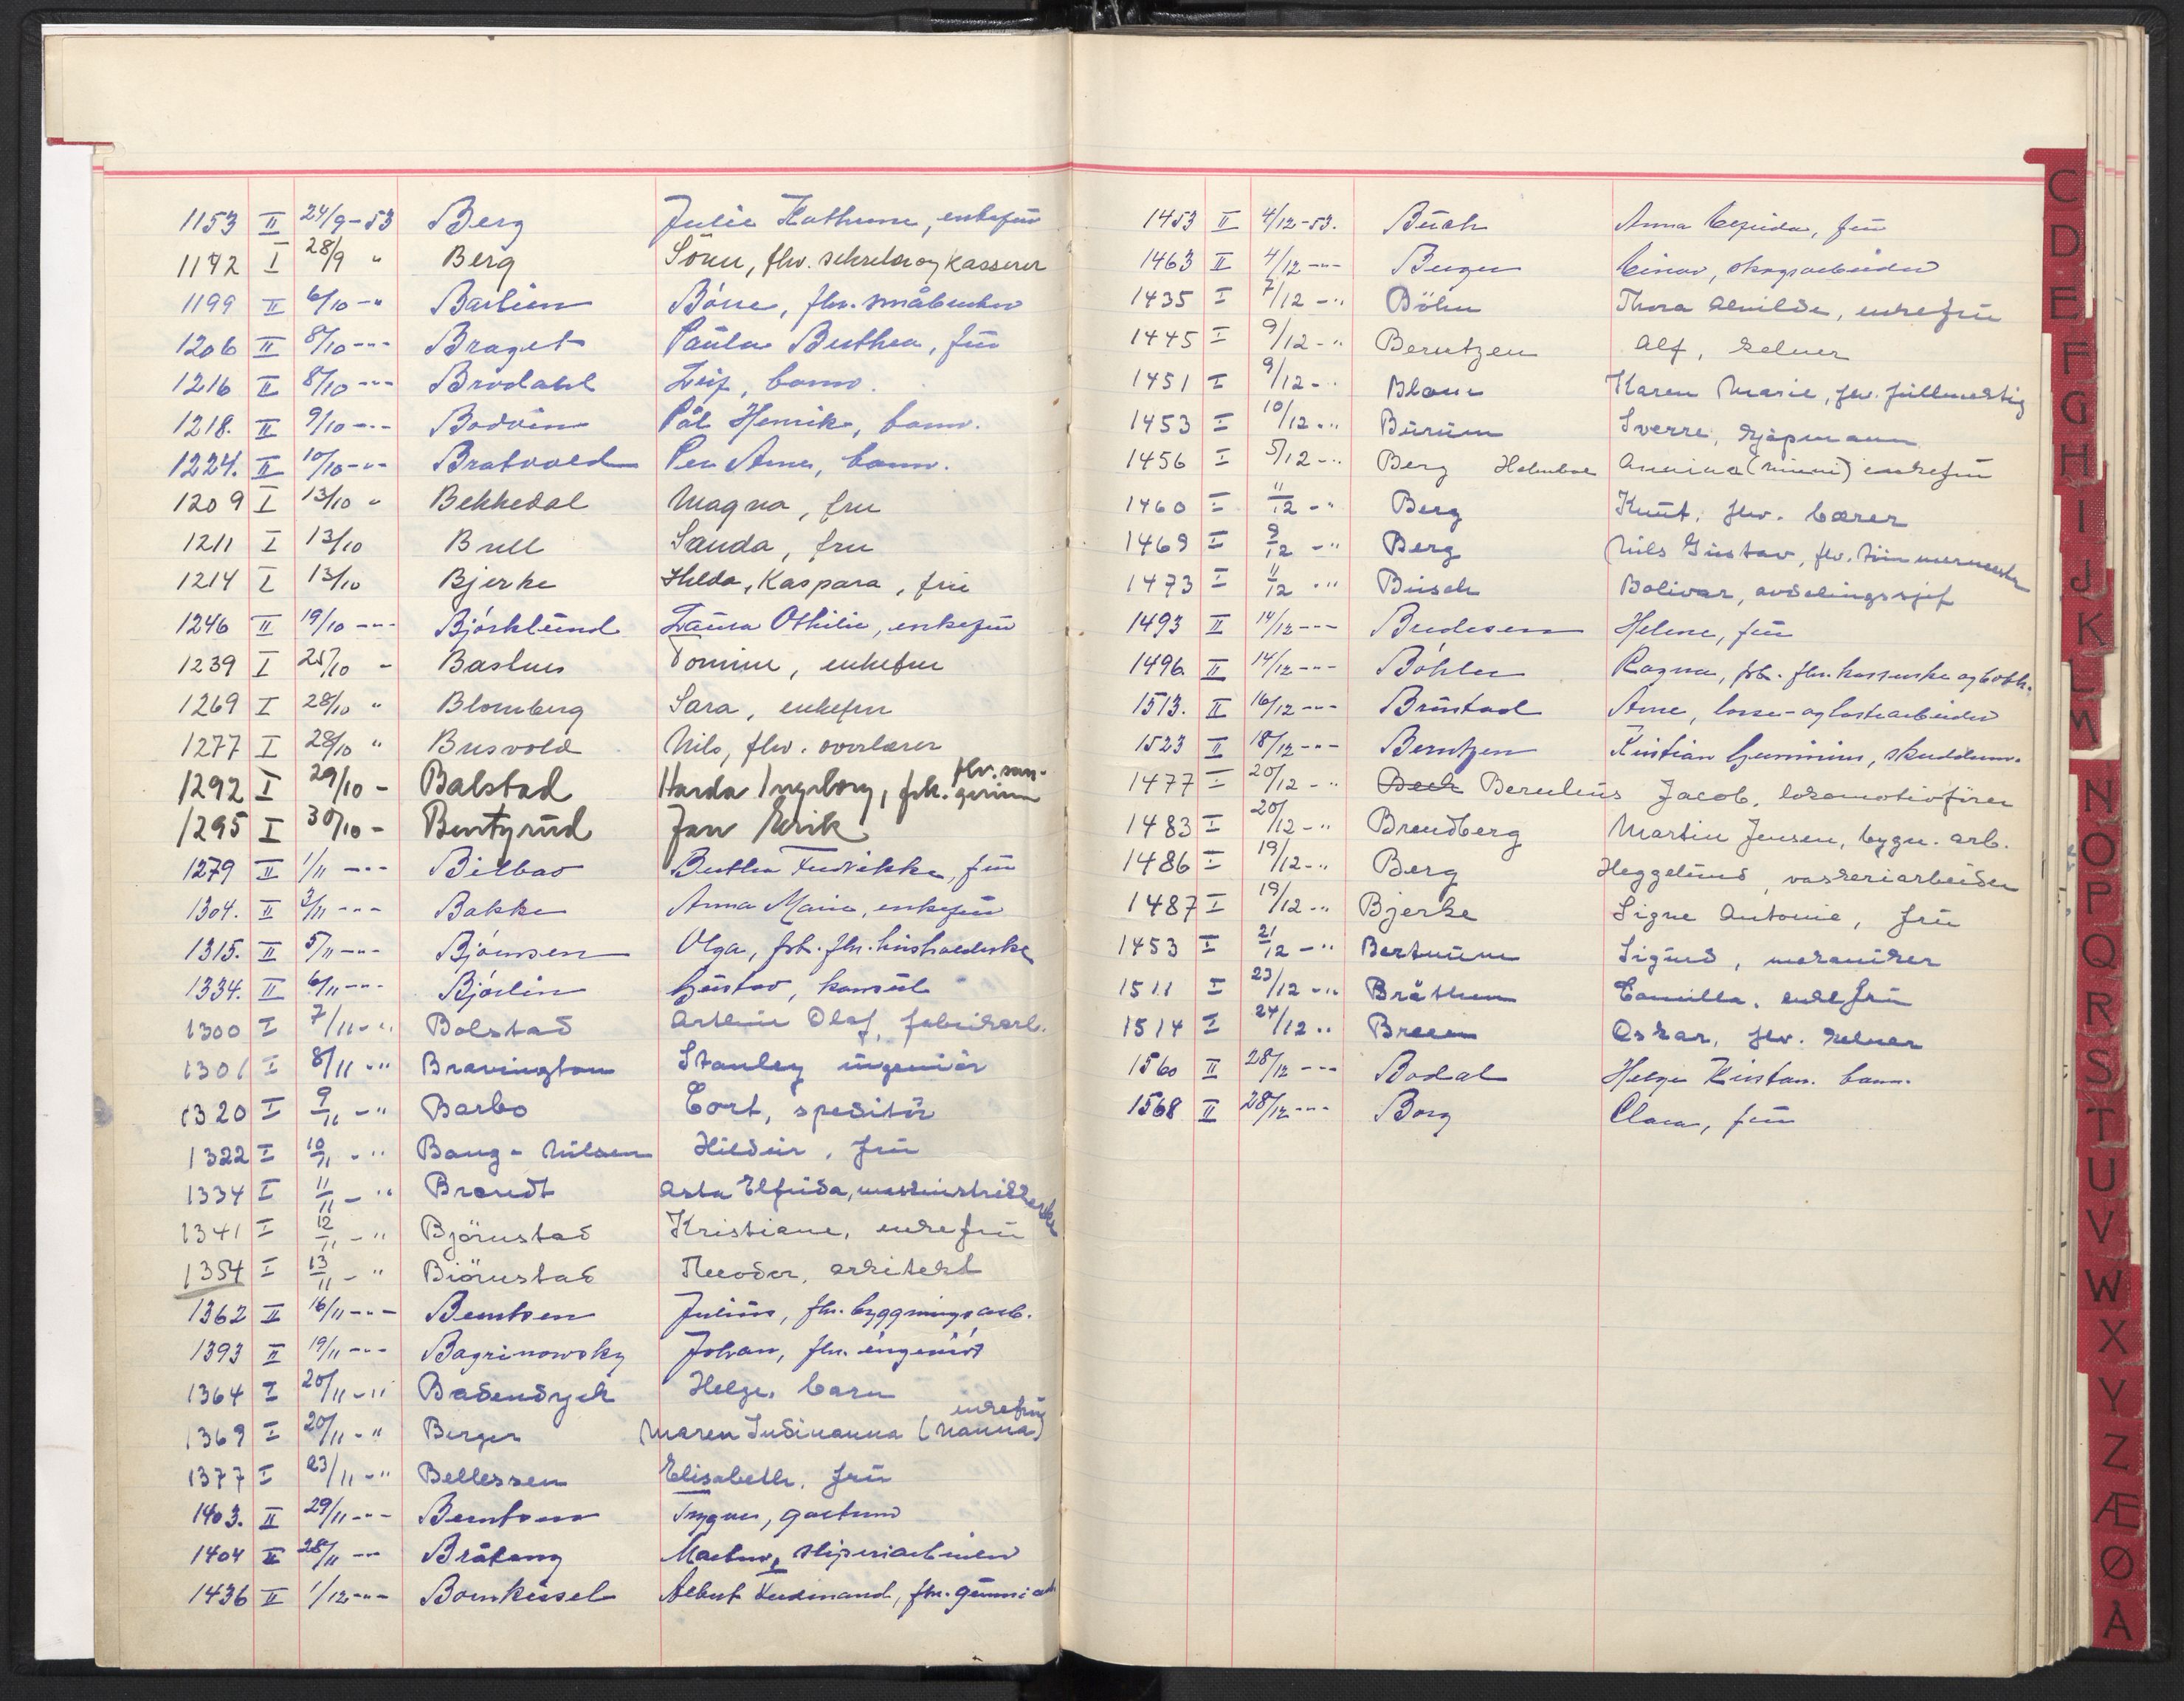 1153 II 24/9-53 Berg Julie Kathrine, enkefrü
1172 I 28/9 " Berg Sönn, fhv. sekretær og kasserer
1199 II 6/10 -" Barlien Börre, fhv. småbruker
1206 II 8/10 --- Braget Paüla Berthea, frü
1216 II 8/10 --- Brodahl Leif, barn.
1218. II 9/10 --- Bodvin Pål Henrik, barn.
1224. II 10/10 --- Bratvold Per Arne, barn.
1209 I 13/10 " Bekkedal Magna, fru
1211 I 13/10 Bull Sanda, fru
1214 I 13/10 Bjerke Hilda, Kaspara, frü
1246 II 19/10 --- Björklünd Laüra Othilie, enkefrü
1239 I 25/10 - Basluis Tomine, enkefru
1269 I 28/10 " Blomberg Sara, enkefru
1277 I 28/10 " Busvold Nils, fhv. overlærer
1292 I 29/10 - Balstad Harda Ingeborg, frk. fhv. sangerinne
1295 I 30/10 - Bentzrüd Jan Erik
1279 II 1/11 --- Bilbao Berthe Fredrikke, frü
1304. II 3/11 --- Bakke Anna Marie, enkefrü
1315. II 5/11 --- Björnsen Olga, frk. fhv. hüsholderske
1334. II 6/11 --- Björlin Güstav, konsül
1300 I 7/11 -" Bolstad Arthur Olaf, fabrikarb.
1301 I 8/11 -" Bravington Stanley ingeniör
1320 I 9/11 -" Barbo Cort, speditör
1322 I 10/11 -" Bang-Nilsen Hildür, frü
1334 I 11/11 -" Brandt Asta Elfrida, maskinstrikkerske
1341 I 12/11 -" Björnstad Kristiane, enkefrü
1354 I 13/11 -" Biörnstad Theodor, arkitekt
1362 II 16/11 --- Berntsen Juliüs, fhv. byggningsarb.
1393 II 19/11 --- Bagrinowsky Johan, fhv. ingeniör
1364 I 20/11 -" Badendyck Helge, barn
1369 I 20/11 -" Berger Maren Indianna (Nanna) enkefrü
1377 I 23/11 -" Bellessen Elisabeth, frü
1403. II 29/11 --- Berntsen Trygve, gartner
1404 II 28/11 --- Bråtang Martin, sliperiarbeider
1436 II 1/12 --- Bornkessel Albert Ferdinand, fhv. gümmiarb
1453 II 4/12-53. Büch Anna Elfrida, frü
1463 II 4/12 --- Berger Einar, skogsarbeider
1435 I 7/12 -" Böhn Thora Alvilde, enkefrü
1445 I 9/12 -" Berntzen Alf, kelner
1451 I 9/12 -" Blom Karen Marie, fhv. füllmektig
1453 I 10/12 -" Bürüm Sverre, kjöpmann
1456 I 5/12 -" Berg Holmboe Annina (Minni) enkefrü
1460 I 11/12 -" Berg Knüt, fhv. lærer
1469 I 9/12 -" Berg Nils Güstav, fhv. tömmermester
1473 I 11/12 -" Büsch Bolivar, avdelingssjef
1493 II 14/12 --- Bredesen Helene, frü
1496. II 14/12 --- Böhler Ragna, frk. fhv. kasserske og bokh.
1513. II 16/12 --- Brüstad Arne, losse- og lastearbeider
1523 II 18/12 --- Berntzen Kristian Gunnerius, skuddm.
1477 I 20/12 -" Beck Beruliüs Jacob, lokomotivförer
1483 I 20/12 -" Brendberg Martin Jensen, bygn. arb.
1486 I 19/12 -" Berg Heggelünd, vaskeriarbeider
1487 I 19/12 -" Bjerke Signe Antonie, frü
1453 I 21/12 -" Bertnüm Sigürd, mekaniker
1511 I 23/12 -" Bråthen Camilla, enkefrü
1514 I 24/12 " Breen Oskar, fhv. kelner
1560 II 28/12 --- Bodal Helge Kristian. barn.
1568 II 28/12 --- Borg Clara, frü
C
D
E
F
G
H
I
J
K
L
M
N
O
P
Q
R
S
T
U
V
W
X
Y
Z
Æ
Ø
A